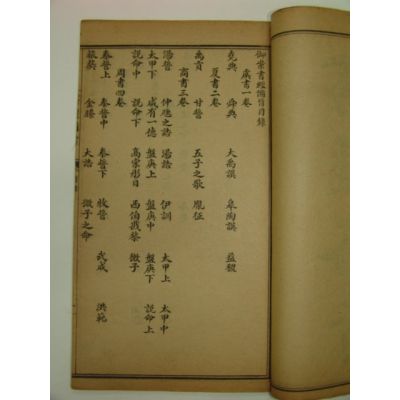 御案書經備旨目錄
虞書一卷
堯典 舜典 大禹謨 皋陶謨 益稷
夏書二卷
禹貢 甘誓 五子之歌 胤征
商書三卷
湯誓 仲虺之誥 湯誥 伊訓 太甲上 太甲中
太甲下 咸有一德 盤庚上 盤庚中 盤庚下 說命上
說命中 說命下 高宗肜日 西伯戡黎 微子
周書四卷
泰誓上 泰誓中 泰誓下 牧誓 武成 洪範
旅獒 金縢 大誥 微子之命